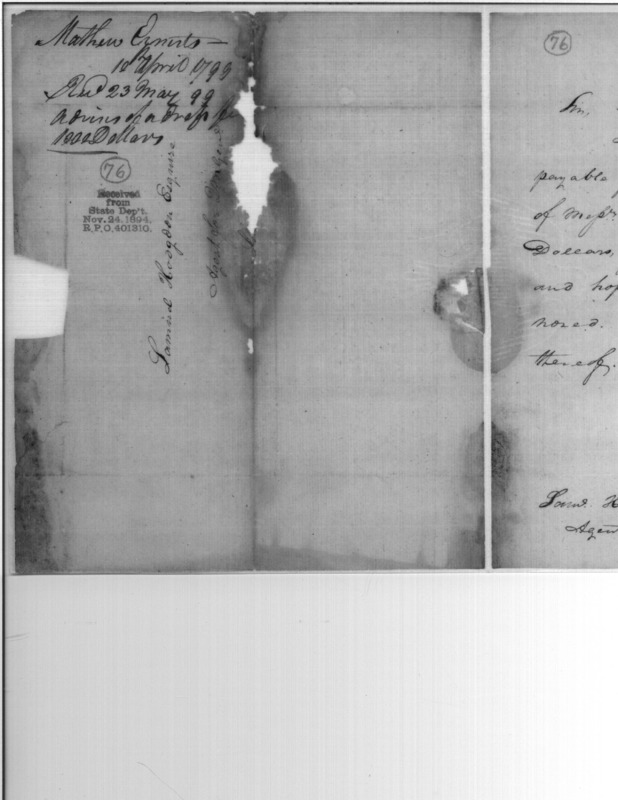 Mathew Ernests —
10 April 1799
Recd 23 May 99
Advises of a draft for
1000 Dollars
76
Received
from
State Dep't.
Nov. 24, 1894.
R.P.O. 401310.
Samuel Hodgdon Esquire
76
Sir,
payable
of Messrs
Dollars,
and hop
nored.
thereof.
Saml. H
Agen